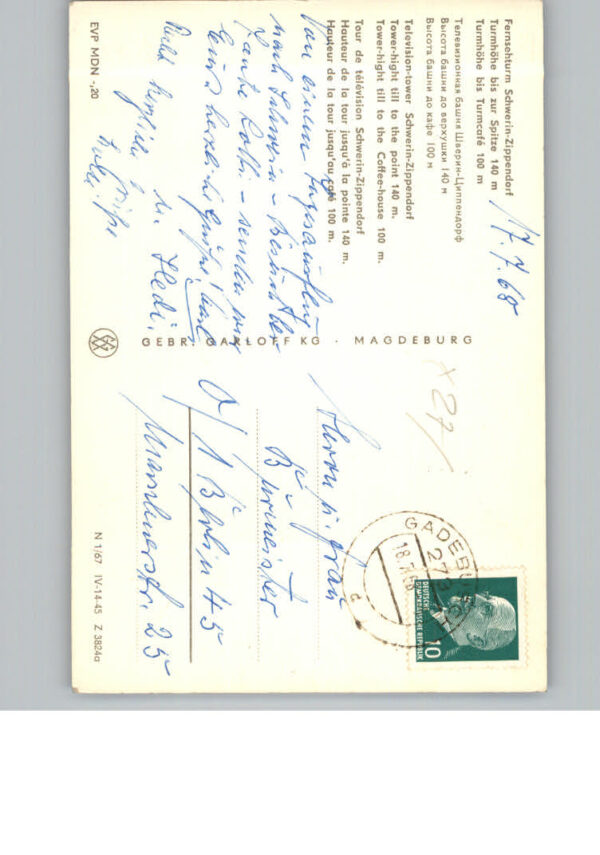 Fernsehturm Schwerin-Zippendorf
Turmhöhe bis zur Spitze 140 m
Turmhöhe bis Turmcafé 100 m
Телевизионная башня Шверин-Циппендорф
Высота башни до верхушки 140 м
Высота башни до кафе 100 м
Television-tower Schwerin-Zippendorf
Tower-hight till to the point 140 m.
Tower-hight till to the Coffee-house 100 m.
Tour de télévision Schwerin-Zippendorf
Hauteur de la tour jusqu'à la pointe 140 m.
Hauteur de la tour jusqu'au café 100 m.
17.7.68
Von einem Tagesausflug
nach Schwerin -
Tante - senden wir
Euch herzliche Grüße!
u. Hedi.
Viele herzliche Grüße
EVP MDN -,20
GEBR. GARLOFF KG · MAGDEBURG
x 27/
GADEBUSCH
273
18.7.
DEUTSCHE
DEMOKRATISCHE REPUBLIK
10
Herrn u. Frau
Burmeister
1 Berlin 45
25
N 1/67 IV-14-45 Z 3824a